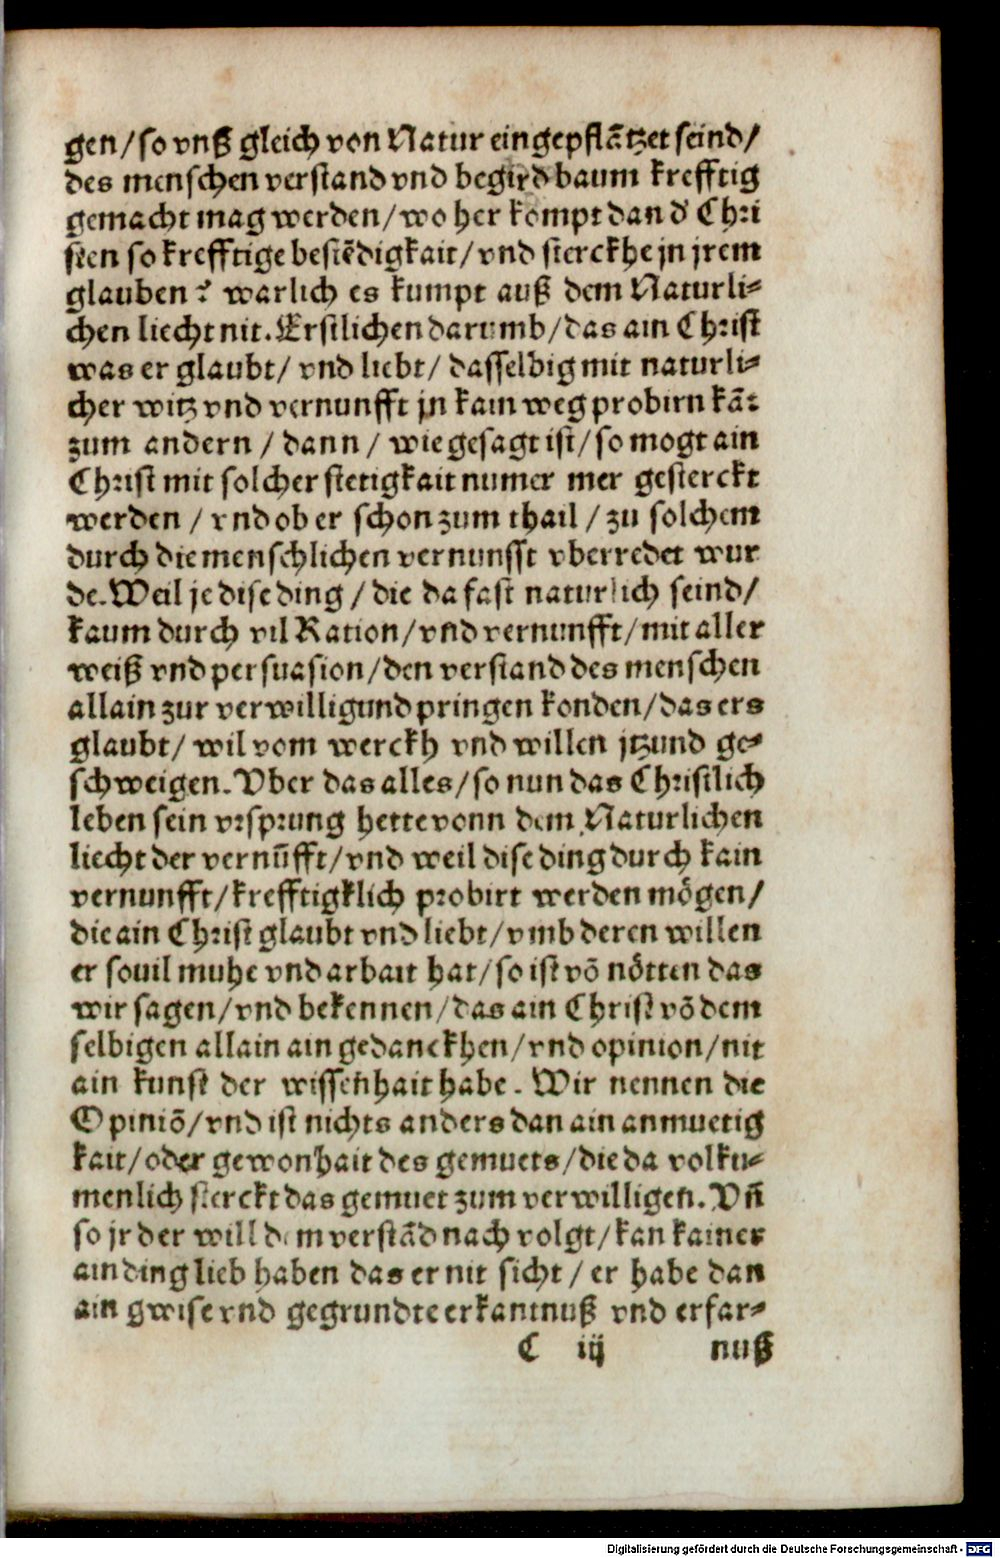 gen/so vnß gleich von Natur eingepflātzet seind/
des menschen verstand vnd begird baum krefftig
gemacht mag werden/wo her kompt dan d' Chri
sten so krefftige bestēdigkait/vnd sterckhe jn jrem
glauben? warlich es kumpt auß dem Naturli-
chen liecht nit. Erstlichen darumb/das ain Christ
was er glaubt/ vnd liebt/ dasselbig mit naturli-
cher witz vnd vernunfft jn kain weg probirn kā:
zum andern / dann / wie gesagt ist/so mogt ain
Christ mit solcher stetigkait numer mer gesterckt
werden / vnd ob er schon zum thail / zu solchem
durch die menschlichen vernunsst vberredet wur
de. Weil je dise ding / die da fast naturlich seind/
kaum durch vil Ration/vnd vernunfft/mit aller
weiß vnd persuasion/den verstand des menschen
allain zur verwilligund pringen konden/das ers
glaubt/ wil vom werckh vnd willen jtzund ge-
schweigen. Vber das alles/so nun das Christlich
leben sein vrsprung hette vonn dem Naturlichen
liecht der vernūfft/vnd weil dise ding durch kain
vernunfft/krefftigklich probirt werden mögen/
die ain Christ glaubt vnd liebt/vmb deren willen
er souil muhe vnd arbait hat/so ist vō nötten das
wir sagen/vnd bekennen/das ain Christ vō dem
selbigen allain ain gedanckhen/vnd opinion/nit
ain kunst der wissenhait habe. Wir nennen die
Opiniō/vnd ist nichts anders dan ain anmuetig
kait/oder gewonhait des gemuets/die da volku-
menlich sterckt das gemuet zum verwilligen. Vn̄
so jr der will dem verstād nach volgt/kan kainer
ain ding lieb haben das er nit sicht / er habe dan
ain gwise vnd gegrundte erkantnuß vnd erfar-
C iij nuß
Digitalisierung gefördert durch die Deutsche Forschungsgemeinschaft - DFG